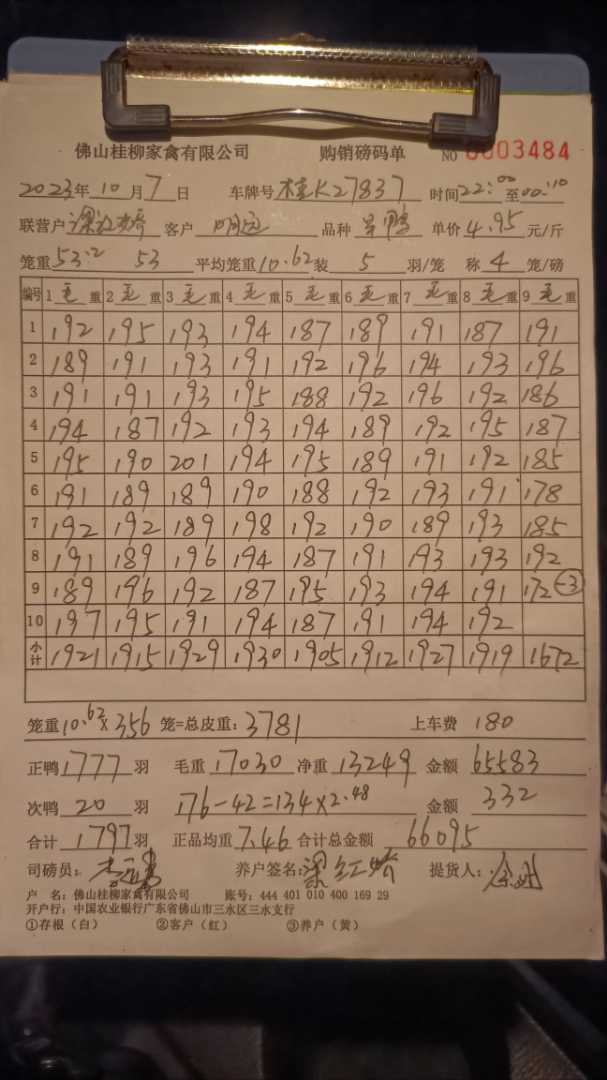 佛山桂柳家禽有限公司 购销磅码单 NO 0003484
2023年10月7日 车牌号 桂K27837 时间22:00至00:10
联营户 梁红娇 客户 明远 品种 单价4.95元/斤
笼重53.2 53 平均笼重10.62装 5 羽/笼 称 4 笼/磅
编号 1 毛 重 2 毛 重 3 毛 重 4 毛 重 5 毛 重 6 毛 重 7 毛 重 8 毛 重 9 毛 重
1 192 195 193 194 187 189 191 187 191
2 189 191 193 191 192 196 194 193 196
3 191 191 193 195 188 192 196 192 186
4 194 187 192 193 194 189 192 195 187
5 195 190 201 194 195 189 191 192 185
6 191 189 189 190 188 192 193 191 178
7 192 192 189 198 192 190 189 193 185
8 191 189 196 194 187 191 193 193 192
9 189 196 192 187 195 193 194 191 172 -3
10 197 195 191 194 187 191 194 192
小计 1921 1915 1929 1930 1905 1912 1927 1919 1672
笼重10.62×356 笼=总皮重:3781 上车费 180
正鸭1777羽 毛重17030净重13249金额65583
次鸭 20 羽 176-42=134×2.48 金额 332
合计 1797羽 正品均重7.46合计总金额 66095
司磅员: 养户签名:梁红娇 提货人:
户 名:佛山桂柳家禽有限公司 账号:444 401 010 400 169 29
开户行:中国农业银行广东省佛山市三水区三水支行
①存根(白) ②客户(红) ③养户(黄)